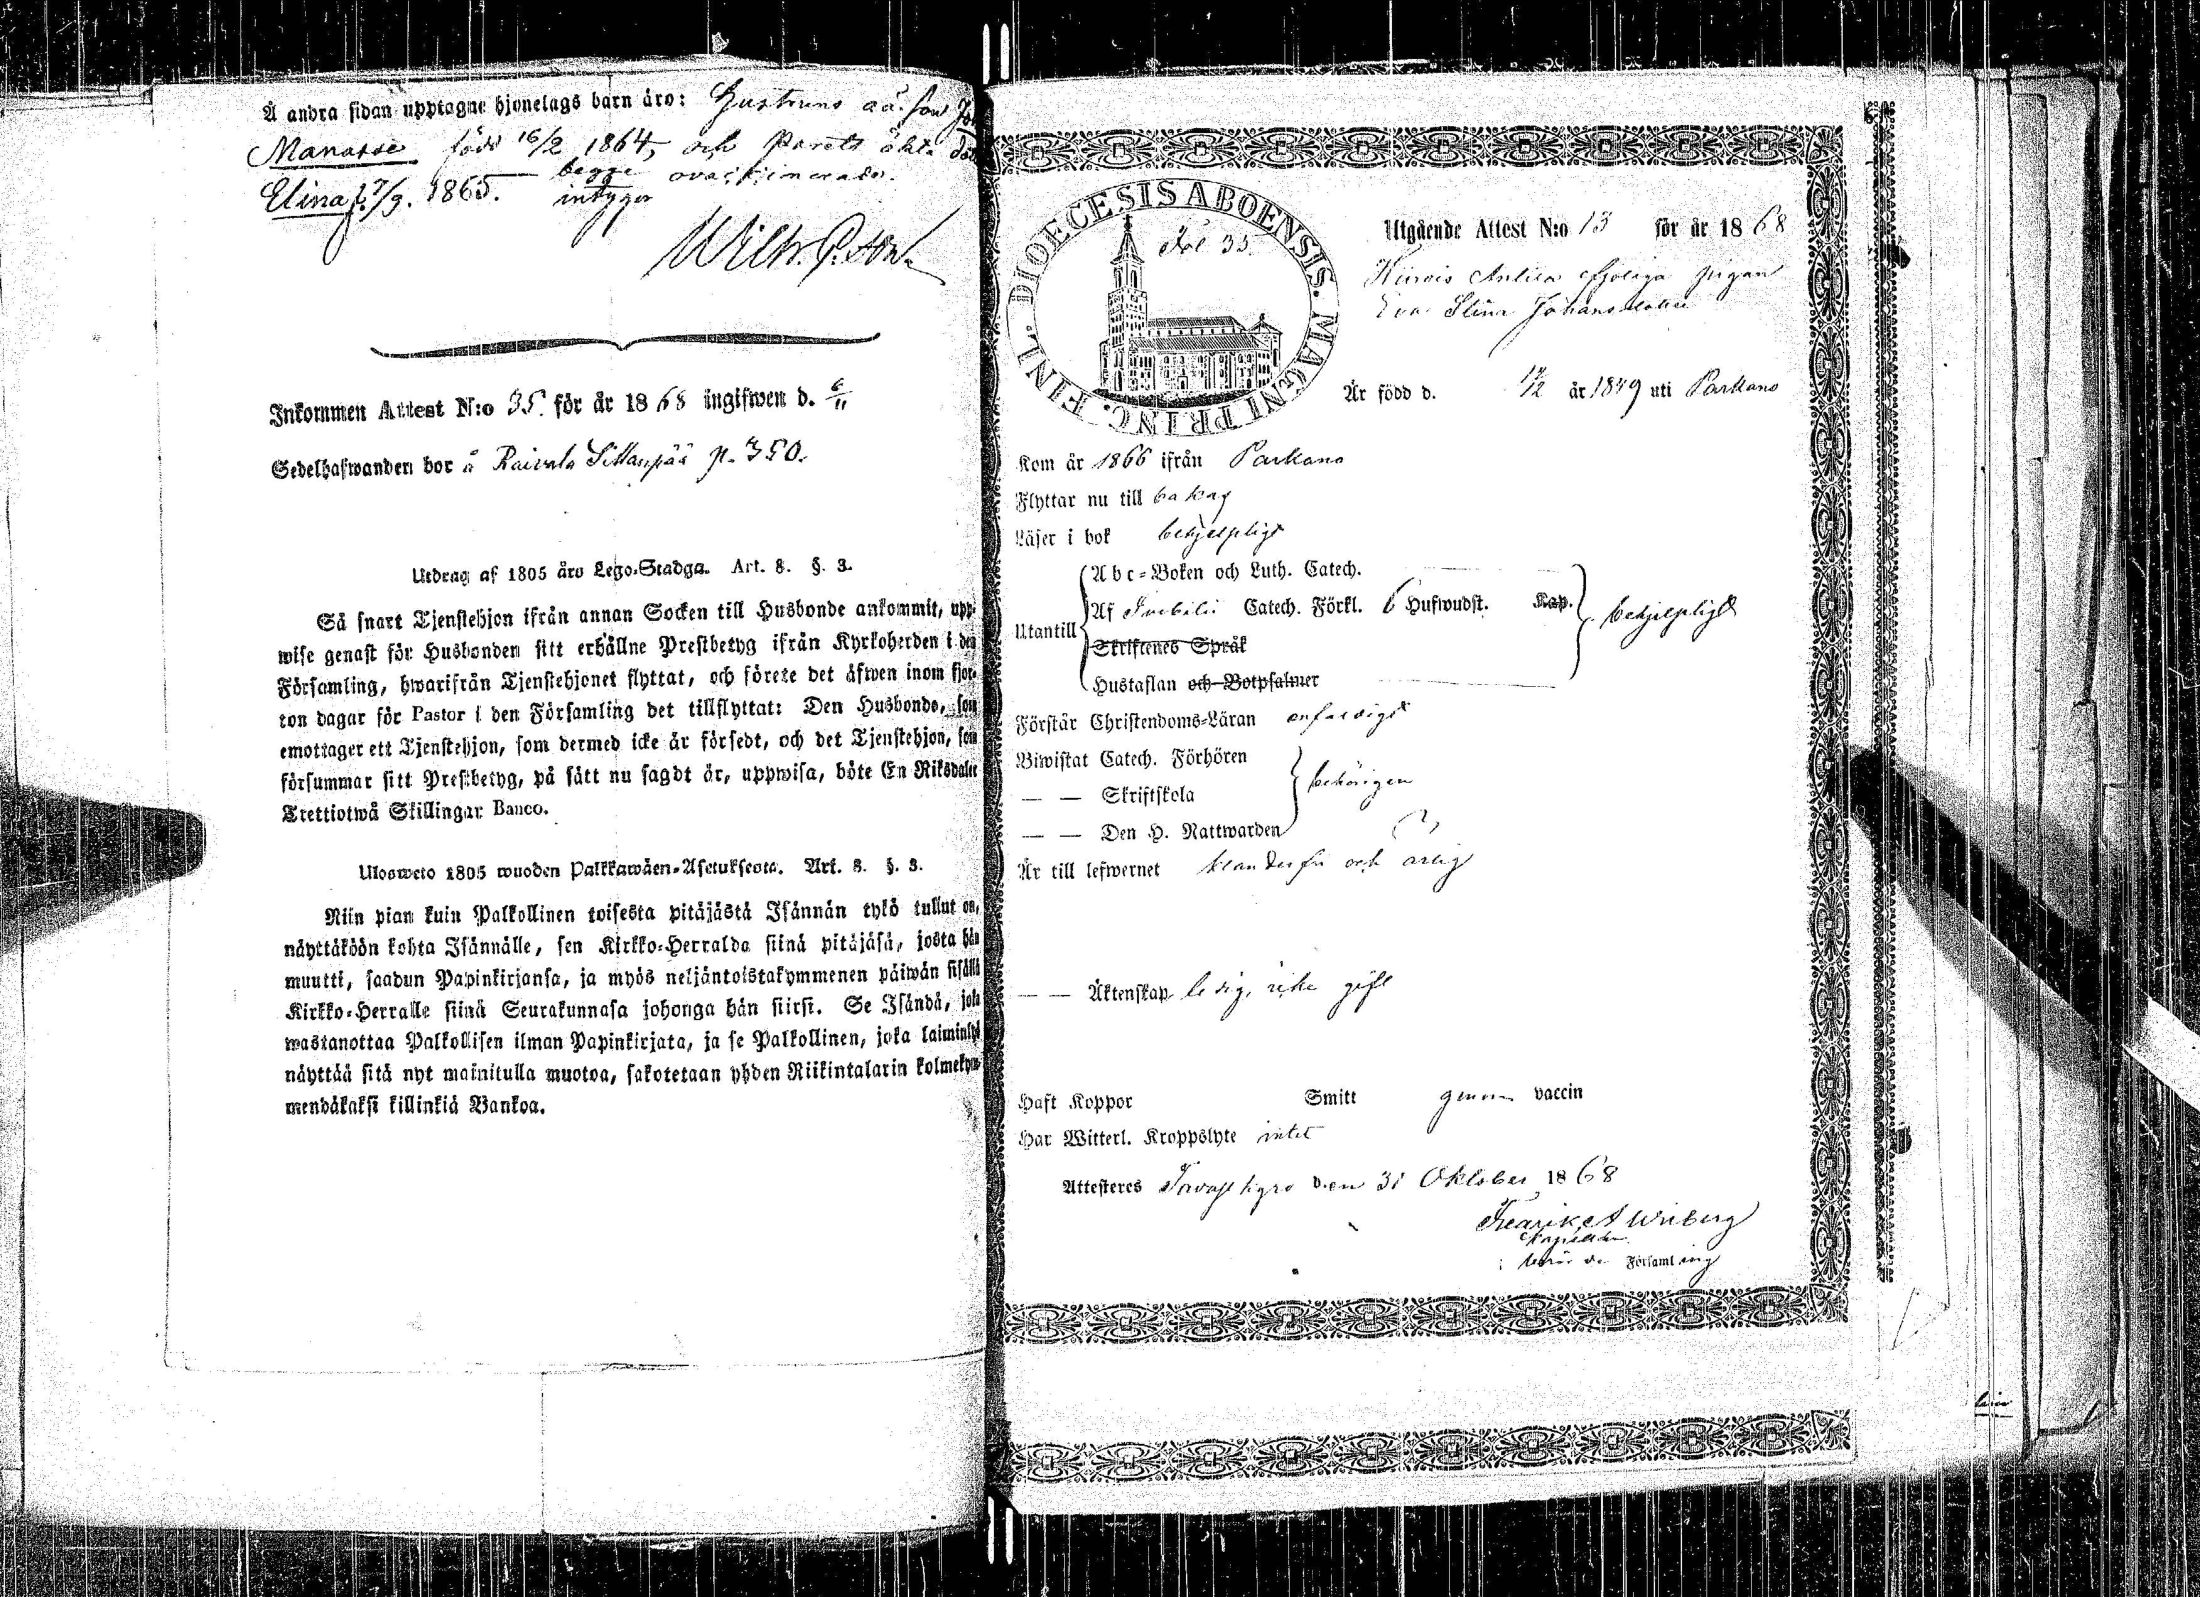 Å andra sidan upptagne hjonelags barn äro: Hustruns oä. son
Manasse född 16/2 1864, och Parets äkta
Elina f. 7/9. 1865. begge ovaccinerade.
intygar
Inkommen Attest N:o 35. för år 1868 ingifwen d. 6/11
Sedelhafwanden bor å Raivala Sillanpää p. 350.
Utdrag af 1805 års Lego-Stadga. Art. 8. §. 3.
Så snart Tjenstehjon ifrån annan Socken till Husbonde ankommit, upp-
wise genast för Husbonden sitt erhållne Prestbetyg ifrån Kyrkoherden i den
Församling, hwarifrån Tjenstehjonet flyttat, och förete det äfwen inom fjor-
ton dagar för Pastor i den Församling det tillflyttat: Den Husbonde, som
emottager ett Tjenstehjon, som dermed icke är försedt, och det Tjenstehjon, som
försummar sitt Prestbetyg, på sätt nu sagdt är, uppwisa, böte En Riksdaler
Trettiotwå Skillingar Banco.
Ulosweto 1805 wuoden Palkkawäen-Asetuksesta. Art. 8. §. 3.
Niin pian kuin Palkollinen toisesta pitäjästä Isännän tykö tullut on,
näyttäköön kohta Isännälle, sen Kirkko-Herralda siinä pitäjäsä, josta hän
muutti, saadun Papinkirjansa, ja myös neljäntoistakymmenen päiwän sisällä
Kirkko-Herralle siinä Seurakunnasa johonga hän siirsi. Se Isändä, joka
wastanottaa Palkollisen ilman Papinkirjata, ja se Palkollinen, joka laiminlyö
näyttää sitä nyt mainitulla muotoa, sakotetaan yhden Riikintalarin kolmekym-
mendäkaksi killinkiä Bankoa.
DIOECESIS ABOENSIS. MAGNI PRINC. FINL.
Fol. 35.
Utgående Attest N:o 13 för år 1868
Antila pigan
Eva Stina Johansdotter
Är född d. 12/2 år 1849 uti Parkano
Kom år 1866 ifrån Parkano
Flyttar nu till bakas
Läser i bok behjelpligt
Utantill
Abc-Boken och Luth. Catech.
Af Svebilii Catech. Förkl. 6 Hufwudst. Kap.
Skriftenes Språk
Hustaflan och Botpsalmer
behjelpligt
Förstår Christendoms-Läran enfaldigt
Biwistat Catech. Förhören
— — Skriftskola
— — Den H. Nattwarden
behörigen
Är till lefwernet klanderfri och ärlig
— — Äktenskap ledig, icke gift
Haft Koppor Smitt genom vaccin
Har Witterl. Kroppslyte intet
Attesteres Tavastkyro den 31 Oktober 1868
Fredrik A Wriberg
Kapellan
i berörde Församling